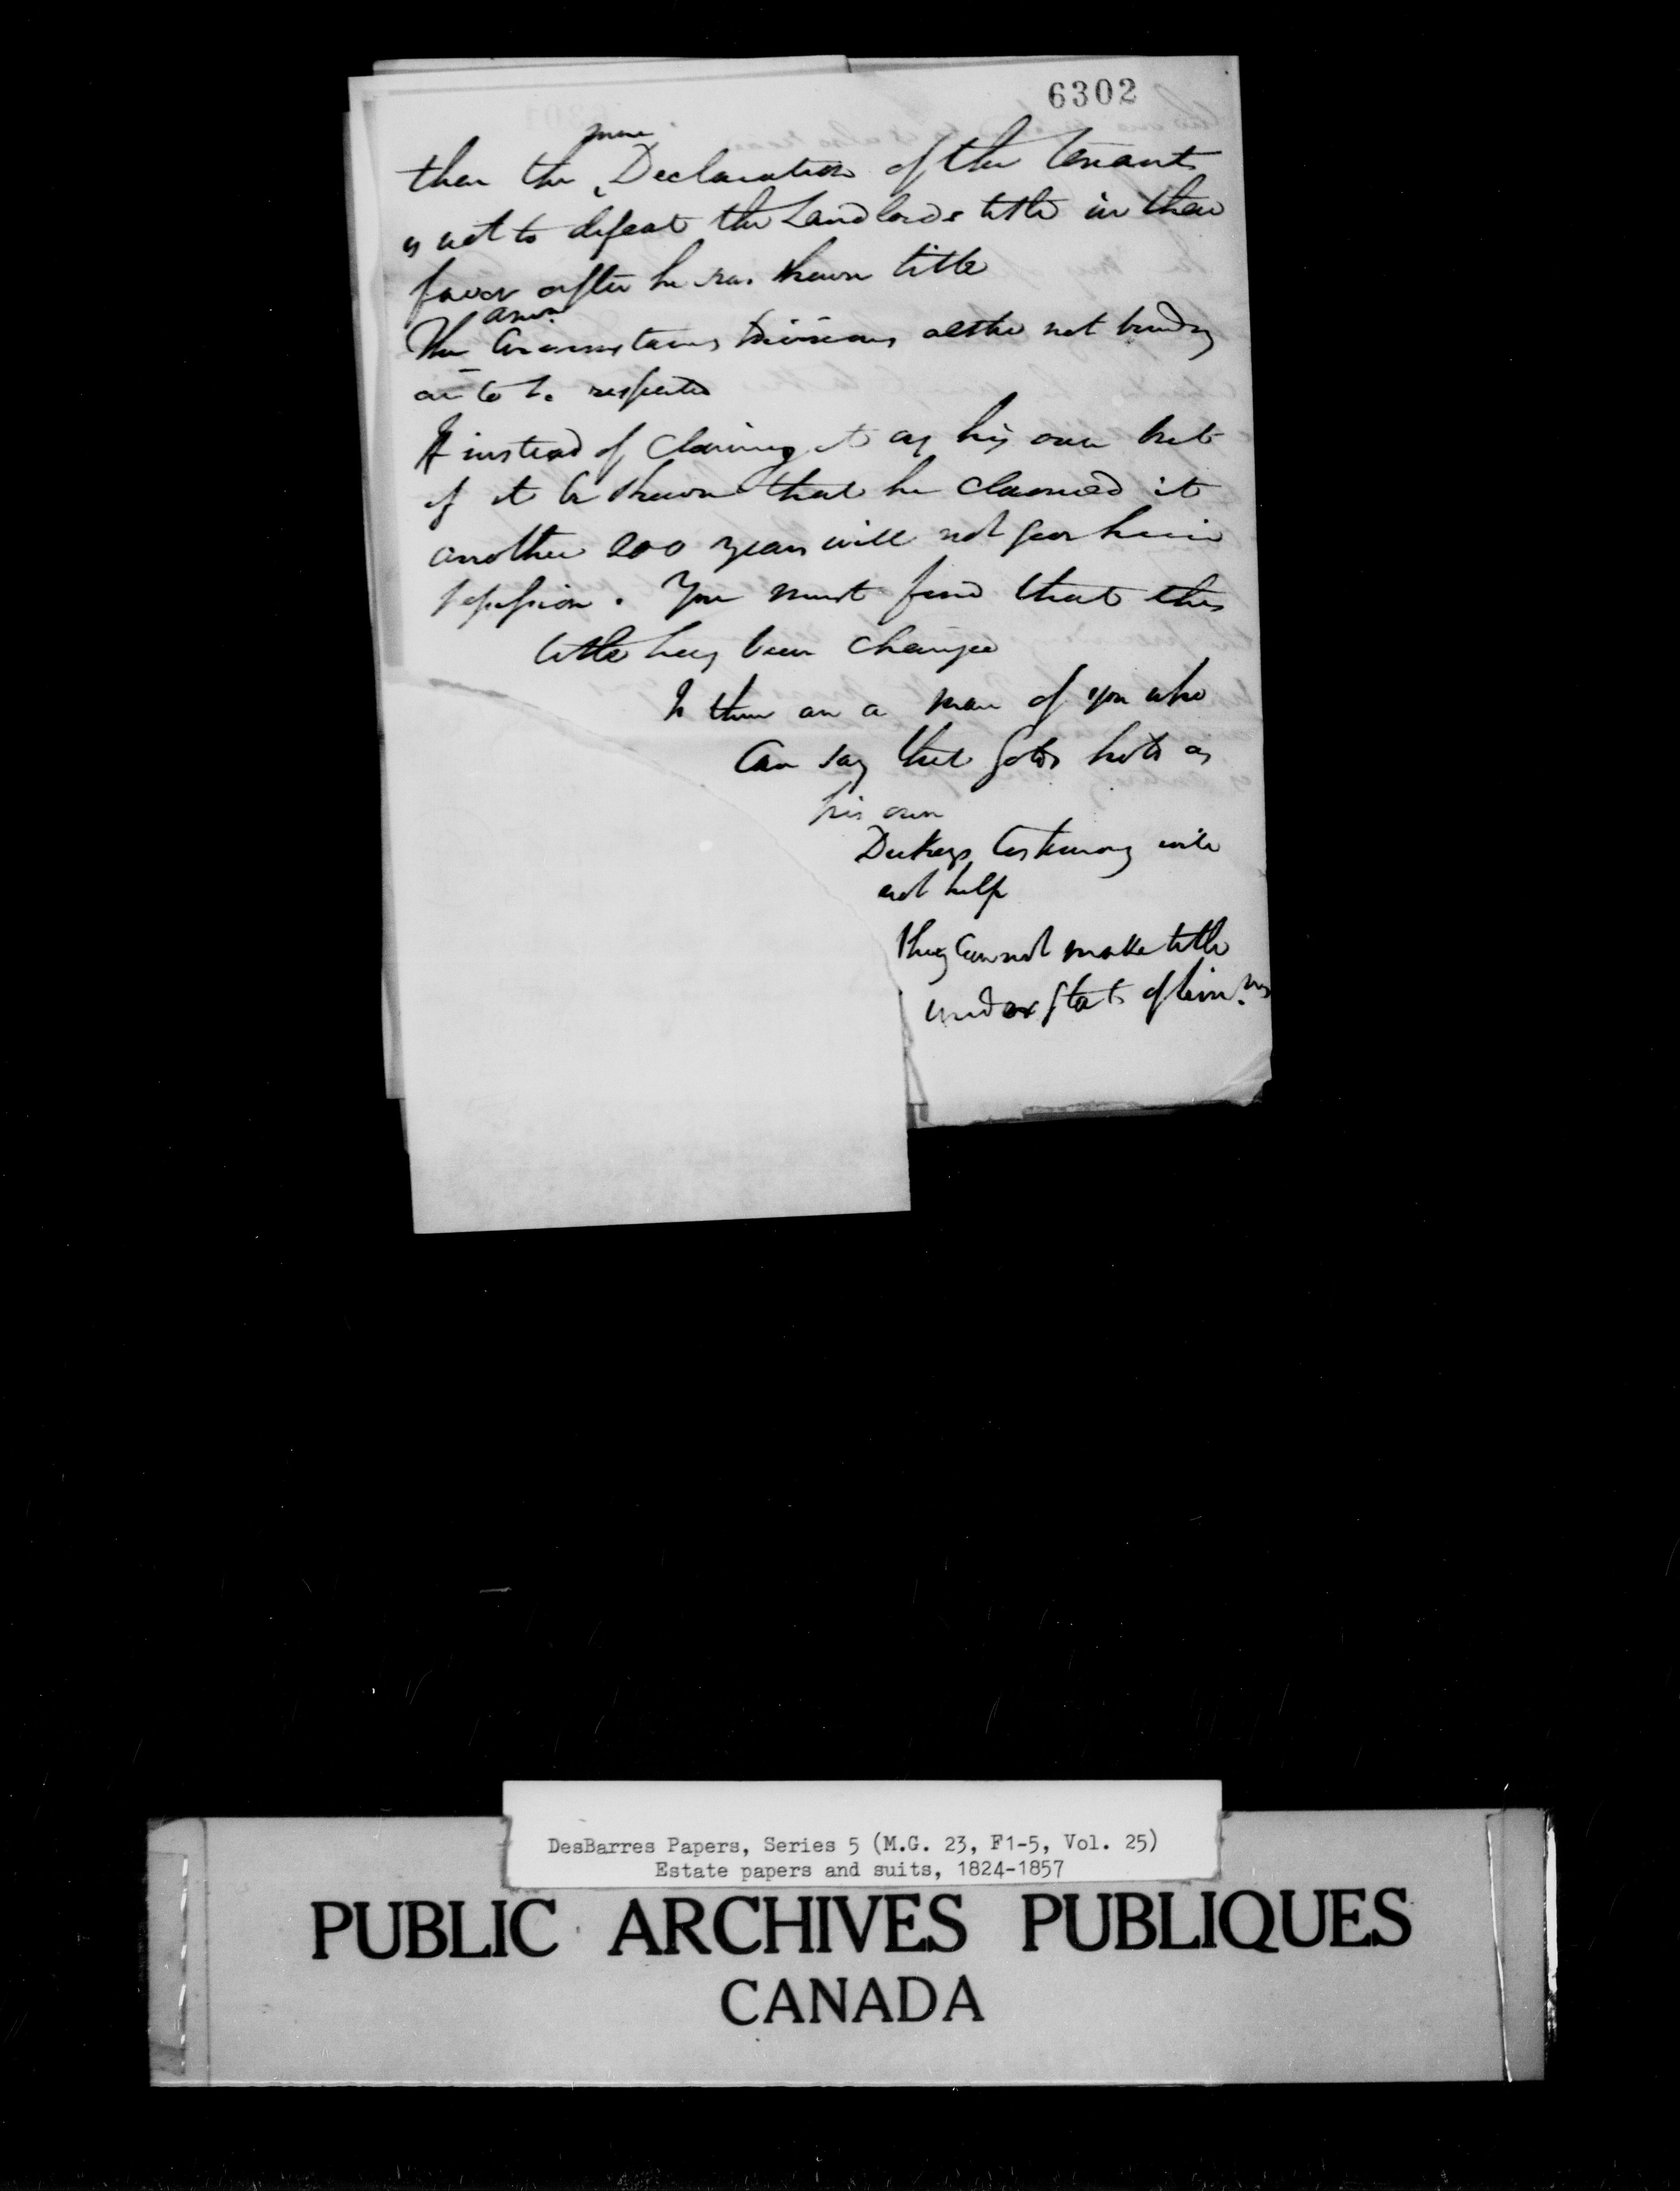 6302
mere
then the Declaration of the Tenants
is not to defeat the Landlords title in their
favor after he has shewn title
The Circumstances Divisions altho not binding
are to be respected
If instead of claiming it as his own but
if it be shewn that he claimed it
another 200 years will not give him
possession. You must find that this
title has been changed
Is there an a man of you who
can say that holds as
his own
Dickeys testimony will
not help
they cannot make title
under Stat of Lim.ns
DesBarres Papers, Series 5 (M.G. 23, F1-5, Vol. 25)
Estate papers and suits, 1824-1857
PUBLIC ARCHIVES PUBLIQUES
CANADA